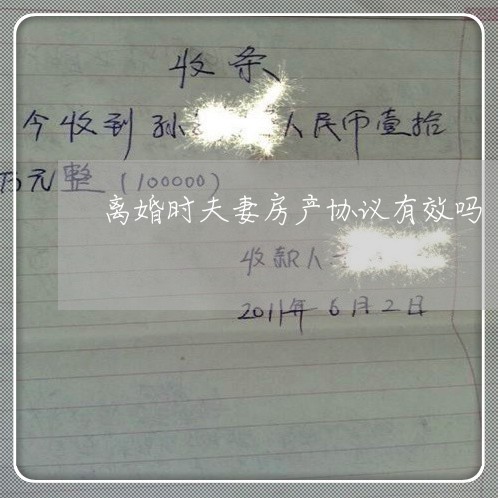 收条
今收到孙 人民币壹拾
万元整（100000）
离婚时夫妻房产协议有效吗
收款人
2011年6月2日